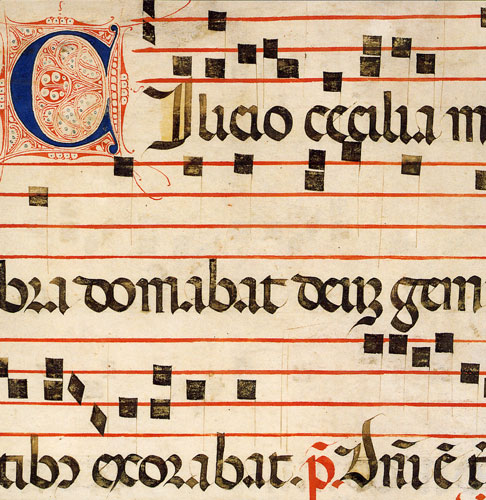 CIlicio cecilia m
bra domabat deuʒ gem
tibꝰ exorabat. p̃. Dñi ē t̃